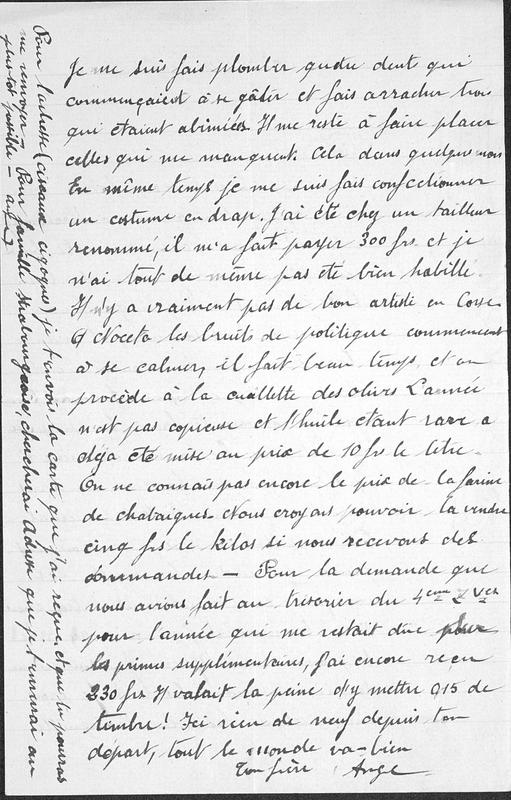 Je me suis fais plomber quatre dent qui
commençaient à se gâter et fais arracher trois
qui étaient abimées. Il me reste à faire placer
celles qui me manquent. Cela dans quelques mois
En même temps je me suis fais confectionner
un costume en drap. J'ai été chez un tailleur
renommé, il m'a fait payer 300 frs et je
n'ai tout de même pas été bien habillé.
Il n'y a vraiment pas de bon artiste en Corse
A Noceta les bruits de politique commencent
à se calmer, il fait beau temps, et on
procède à la cueillette des olives L'année
n'est pas copieuse et l'huile étant rare a
déja été mise au prix de 10 frs le litre.
On ne connais pas encore le prix de la farine
de chataignes. Nous croyons pouvoir la vendre
cinq frs le kilos si nous recevons des
commandes — Pour la demande que
nous avions fait au trésorier du 4eme Z ves
pour l'année qui me restait due pour
les primes supplémentaires, j'ai encore reçu
230 frs Il valait la peine d'y mettre 0,15 de
timbre! Ici rien de neuf depuis ton
départ, tout le monde va-bien
Ton frère Ange
Pour l'adresse (ciseaux cigognes) je t'envois la carte que j'ai reçue et que tu pourras
me renvoyer — Pour famille strasbourgeoise, chercherai Adresse que je t'enverrai au
plus tôt possible — Ange